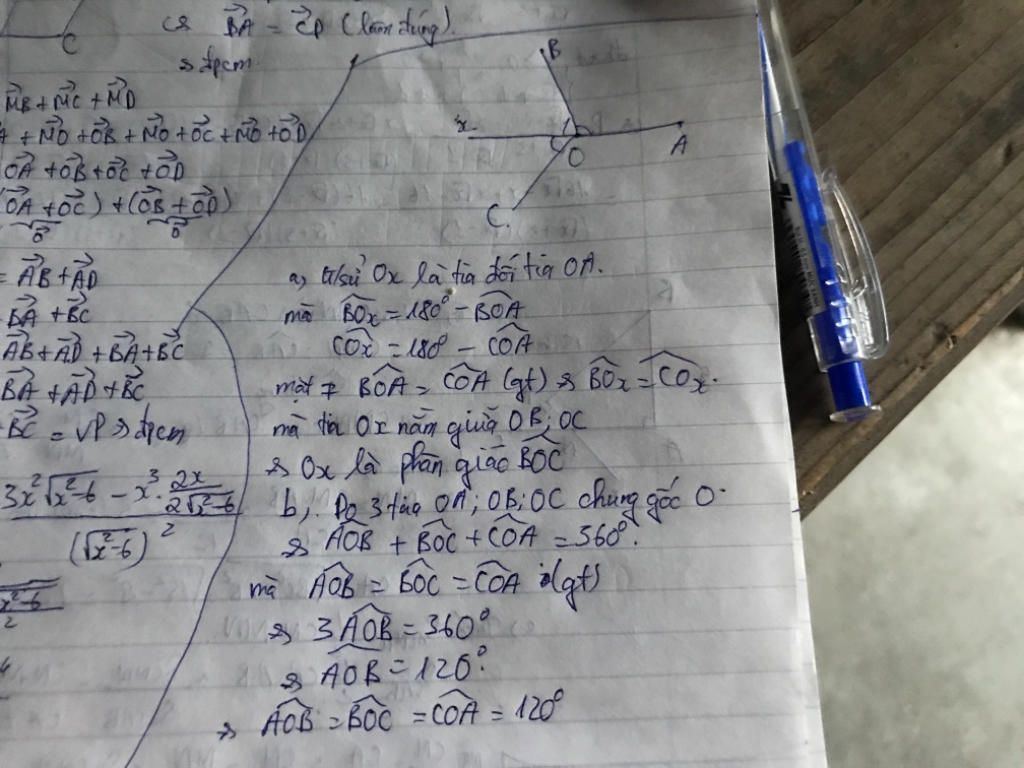 C
⇔ $\vec{BA} = \vec{CD}$ (luôn đúng).
⇒ đpcm
$\vec{MB} + \vec{MC} + \vec{MD}$
$+ \vec{MO} + \vec{OB} + \vec{MO} + \vec{OC} + \vec{MO} + \vec{OD}$
$\vec{OA} + \vec{OB} + \vec{OC} + \vec{OD}$
$(\vec{OA} + \vec{OC}) + (\vec{OB} + \vec{OD})$
$\vec{0}$ $\vec{0}$
$= \vec{AB} + \vec{AD}$
$\vec{BA} + \vec{BC}$
$\vec{AB} + \vec{AD} + \vec{BA} + \vec{BC}$
$\vec{BA} + \vec{AD} + \vec{BC}$
$\vec{BC}$ = VP ⇒ đpcm
$\frac{3x^2\sqrt{x^2-6} - x^3 \cdot \frac{2x}{2\sqrt{x^2-6}}}{(\sqrt{x^2-6})^2}$
$\sqrt{x^2-6}$
2
B
x
O
A
C
a, Ox là tia đối tia OA.
mà $\widehat{BOx} = 180° - \widehat{BOA}$
$\widehat{COx} = 180° - \widehat{COA}$
mặt ≠ $\widehat{BOA} = \widehat{COA}$ (gt) ⇒ $\widehat{BOx} = \widehat{COx}$.
mà tia Ox nằm giữa OB; OC
⇒ Ox là phân giác $\widehat{BOC}$
b, Do 3 tia OA; OB; OC chung gốc O.
⇒ $\widehat{AOB} + \widehat{BOC} + \widehat{COA} = 360°$.
mà $\widehat{AOB} = \widehat{BOC} = \widehat{COA}$ (gt)
⇒ $3\widehat{AOB} = 360°$
⇒ $\widehat{AOB} = 120°$.
⇒ $\widehat{AOB} = \widehat{BOC} = \widehat{COA} = 120°$